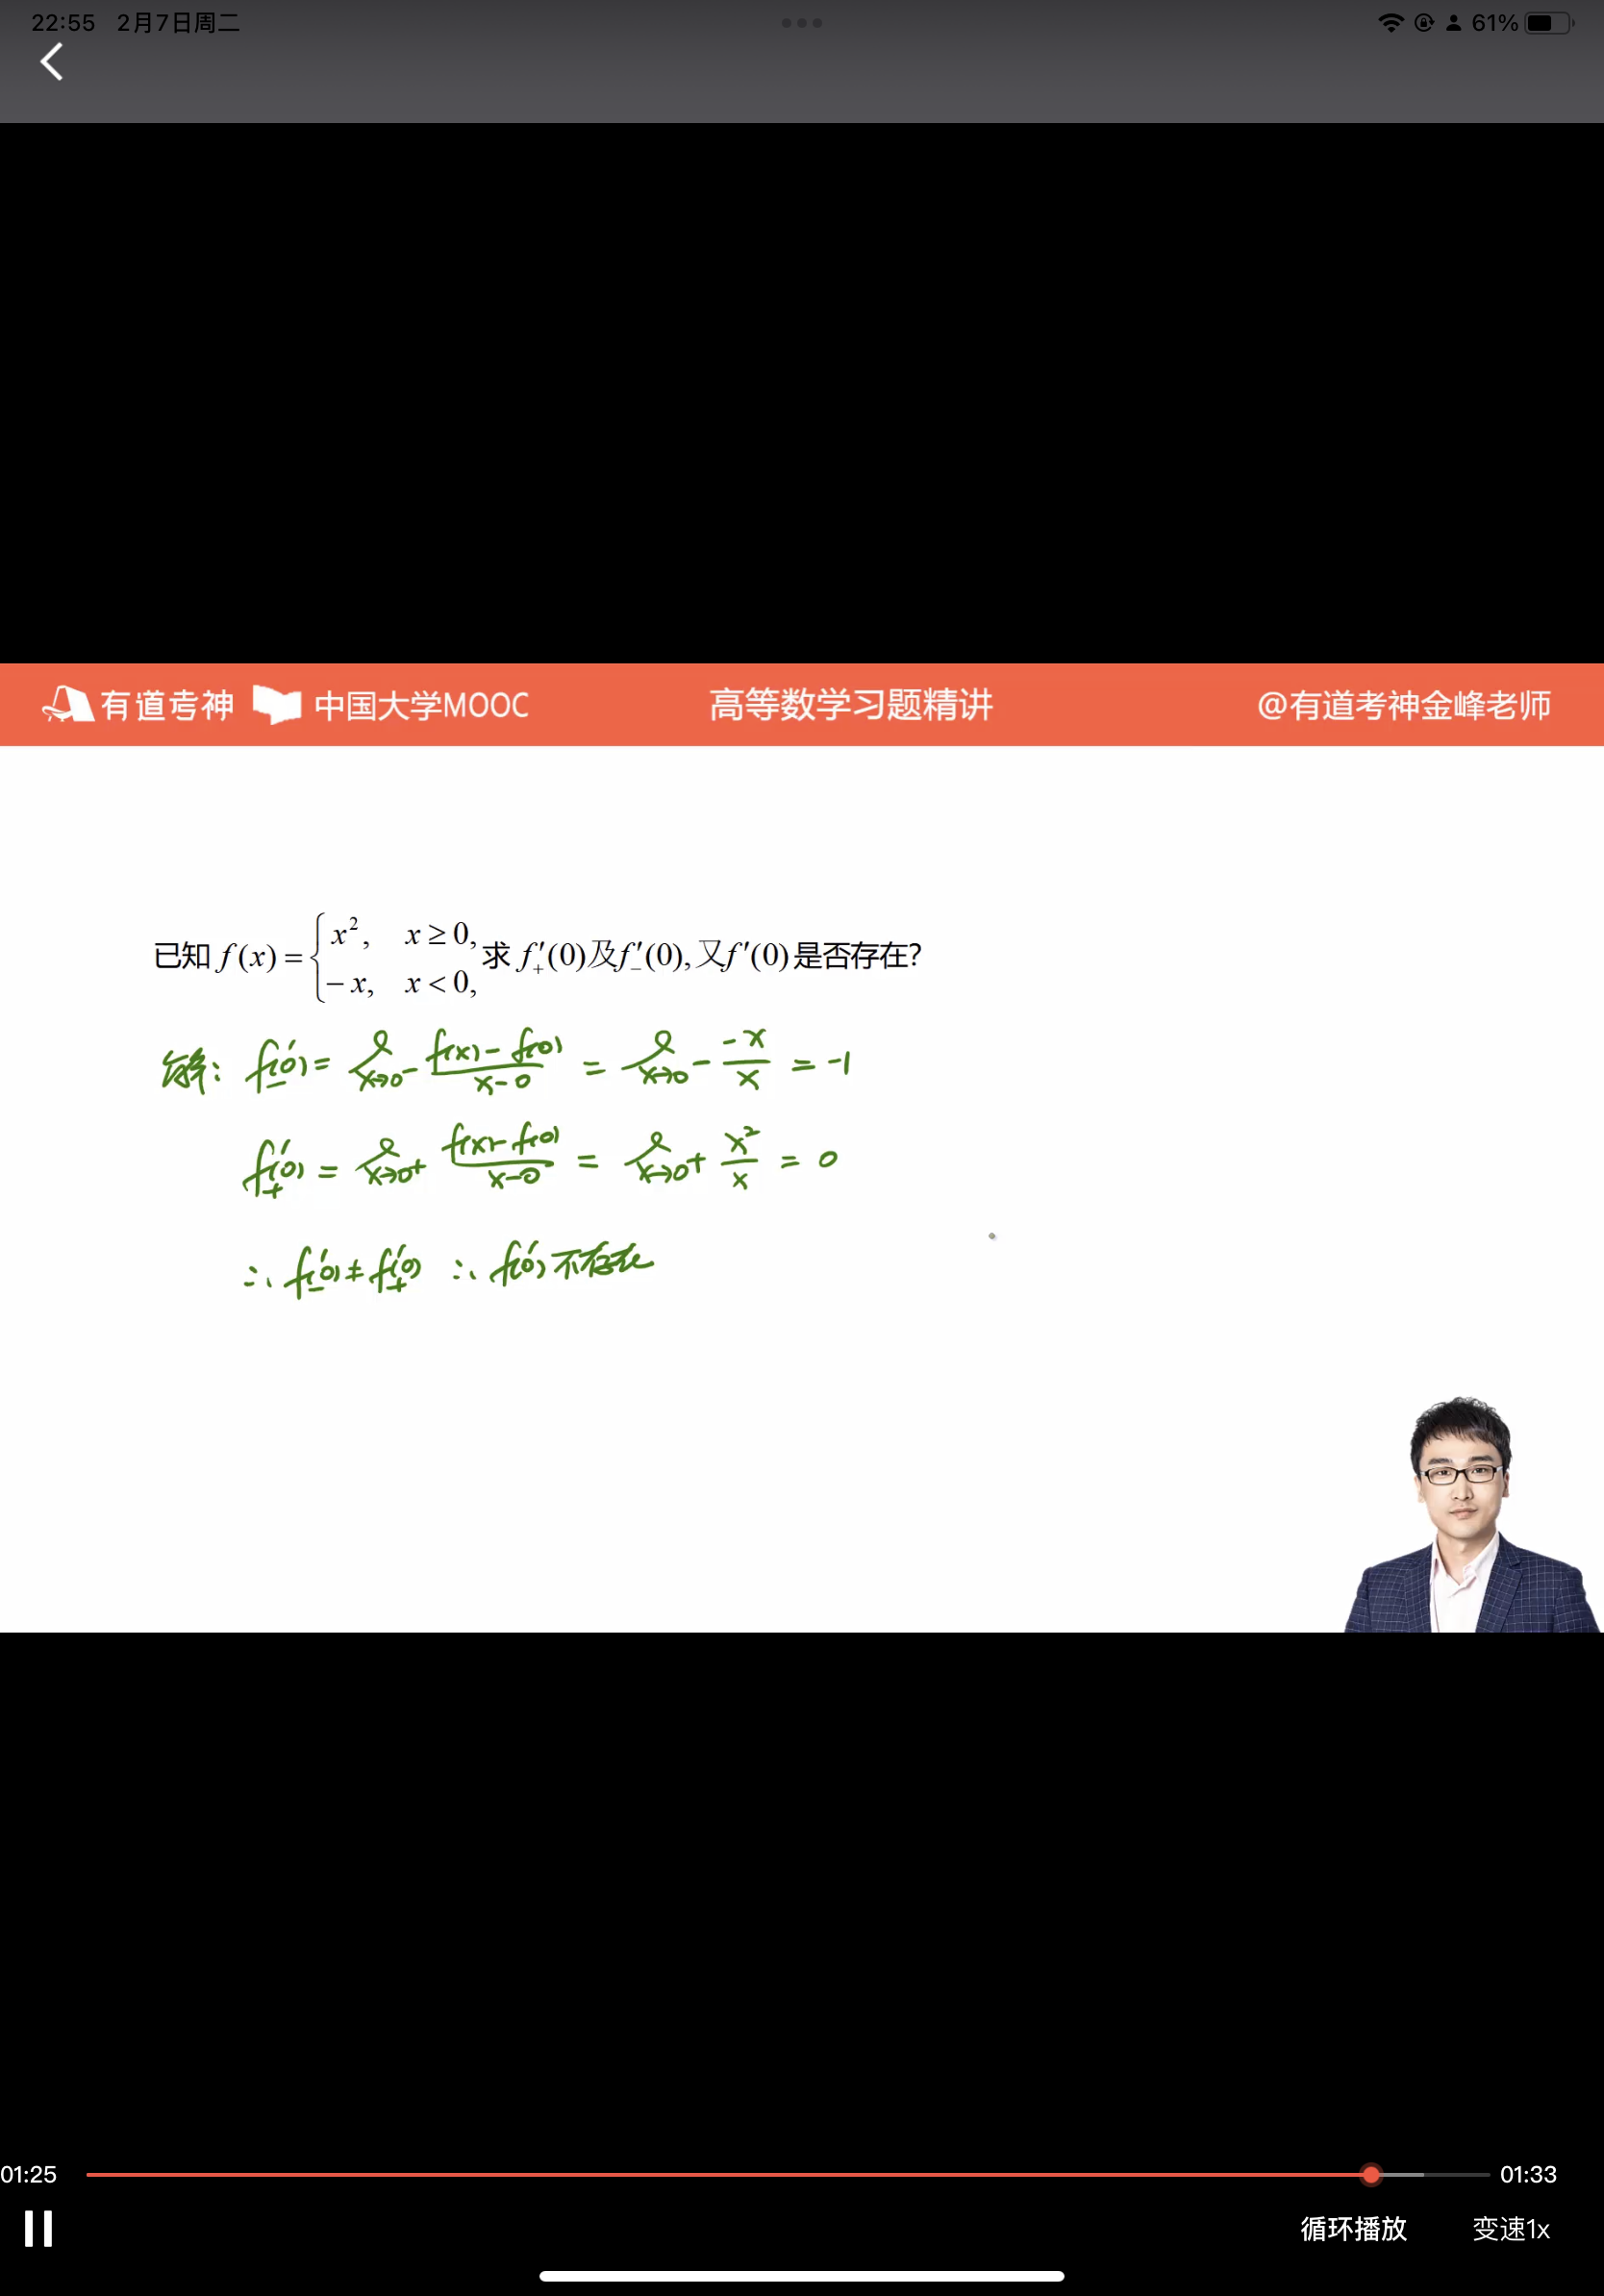 22:55 2月7日周二 61%
有道考神 中国大学MOOC 高等数学习题精讲 @有道考神金峰老师
已知 f(x) = { x², x ≥ 0, 求 f′₊(0)及f′₋(0), 又f′(0)是否存在?
− x, x < 0,
解: f′₋(0) = lim x→0⁻ (f(x) − f(0))/(x − 0) = lim x→0⁻ (−x)/x = −1
f′₊(0) = lim x→0⁺ (f(x) − f(0))/(x − 0) = lim x→0⁺ x²/x = 0
∴ f′₋(0) ≠ f′₊(0) ∴ f′(0) 不存在
01:25 01:33
循环播放 变速1x